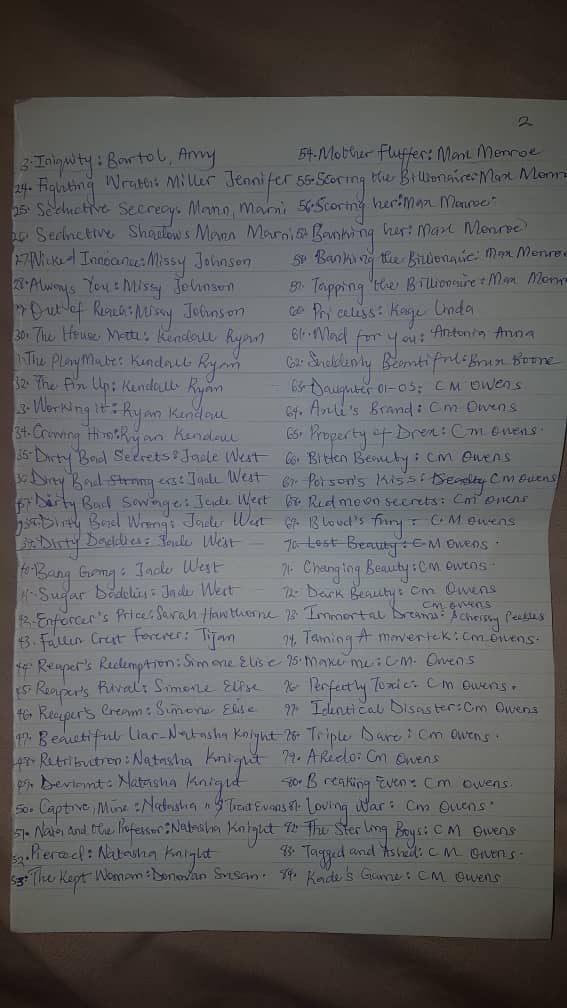 2
3. Iniquity: Bartol, Amy
24. Fighting Wrath: Miller Jennifer
25. Seductive Secrecy: Mann, Marni
26. Seductive Shadows Mann Marni
27. Wicked Innocence: Missy Johnson
28. Always You: Missy Johnson
29 Out of Reach: Missy Johnson
30. The House Mate: Kendall Ryan
1. The Play Mate: Kendall Ryan
32. The Fix Up: Kendall Ryan
3. Working it: Ryan Kendall
34. Craving Him: Ryan Kendall
35. Dirty Bad Secrets: Jade West
36 Dirty Bad Strangers: Jade West
37. Dirty Bad Savage: Jade West
38. Dirty Bad Wrong: Jade West
39. Dirty Daddies: Jade West
40. Bang Gang: Jade West
41. Sugar Daddies: Jade West
42. Enforcer's Price: Sarah Hawthorne
43. Fallen Crest Forever: Tijan
44. Reaper's Redemption: Simone Elise
45. Reaper's Rival: Simone Elise
46. Reaper's Cream: Simone Elise
47. Beautiful Liar - Natasha Knight
48. Retribution: Natasha Knight
49. Deviant: Natasha Knight
50. Captive, Mine: Natasha Trent Evans
51. and the Professor: Natasha Knight
52. Pierced: Natasha Knight
53. The Kept Woman: Donovan Susan.
54. Mother Fluffer: Max Monroe
55. Scoring the Billionaire: Max Monroe
56. Scoring her: Max Monroe
57 Banking her: Max Monroe
58. Banking the Billionaire: Max Monroe
59. Tapping the Billionaire: Max Monroe
60. Priceless: Kage Linda
61. Mad for you: Antonia Anna
62. Suddenly Beautiful: Boone
63. Daughter 01-03: CM Owens
64. Axle's Brand: Cm Owens
65. Property of Drex: Cm Owens.
66. Bitten Beauty: CM Owens
67. Poison's Kiss: Deadly CM Owens
68. Red moon secrets: Cm Owens
69. Blood's fury: C.M Owens
70. Lost Beauty: CM Owens.
71. Changing Beauty: CM Owens.
72. Dark Beauty: Cm Owens
73. Immortal Dreams: Cm Owens & Cherissy Peebles
74. Taming A maverick: Cm Owens.
75. Make me: CM. Owens
76. Perfectly Toxic: CM Owens.
77. Identical Disaster: Cm Owens
78. Triple Dare: Cm Owens.
79. A Redo: Cm Owens
80. Breaking Even: CM Owens.
81. Loving War: Cm Owens.
82. The Sterling Boys: CM Owens
83. Tagged and Ashed: CM Owens.
84. Kade's Game: CM Owens